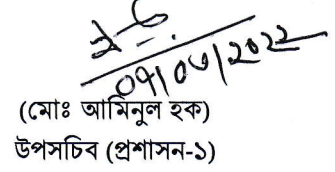 ০৭/০৩/২০২২
(মোঃ আমিনুল হক)
উপসচিব (প্রশাসন-১)